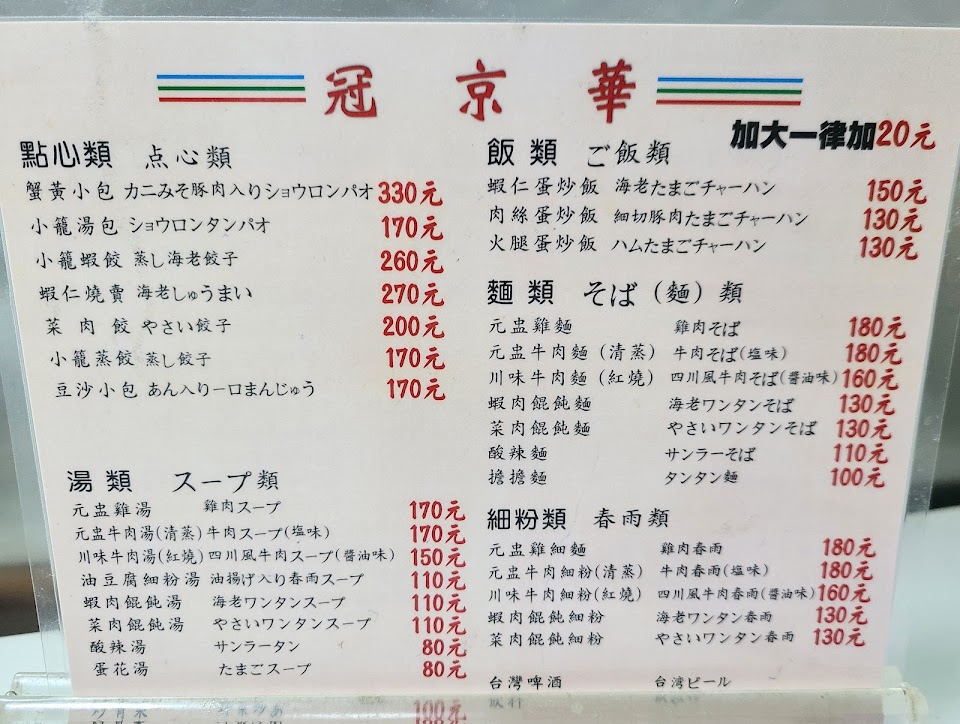 冠京華
加大一律加20元
點心類 点心類
蟹黃小包 カニみそ豚肉入りショウロンパオ 330元
小籠湯包 ショウロンタンパオ 170元
小籠蝦餃 蒸し海老餃子 260元
蝦仁燒賣 海老しゅうまい 270元
菜肉餃 やさい餃子 200元
小籠蒸餃 蒸し餃子 170元
豆沙小包 あん入り一口まんじゅう 170元
湯類 スープ類
元盅雞湯 雞肉スープ 170元
元盅牛肉湯(清蒸) 牛肉スープ(塩味) 170元
川味牛肉湯(紅燒) 四川風牛肉スープ(醬油味) 150元
油豆腐細粉湯 油揚げ入り春雨スープ 110元
蝦肉餛飩湯 海老ワンタンスープ 110元
菜肉餛飩湯 やさいワンタンスープ 110元
酸辣湯 サンラータン 80元
蛋花湯 たまごスープ 80元
飯類 ご飯類
蝦仁蛋炒飯 海老たまごチャーハン 150元
肉絲蛋炒飯 細切豚肉たまごチャーハン 130元
火腿蛋炒飯 ハムたまごチャーハン 130元
麵類 そば(麵)類
元盅雞麵 雞肉そば 180元
元盅牛肉麵(清蒸) 牛肉そば(塩味) 180元
川味牛肉麵(紅燒) 四川風牛肉そば(醬油味) 160元
蝦肉餛飩麵 海老ワンタンそば 130元
菜肉餛飩麵 やさいワンタンそば 130元
酸辣麵 サンラーそば 110元
擔擔麵 タンタン麵 100元
細粉類 春雨類
元盅雞細麵 雞肉春雨 180元
元盅牛肉細粉(清蒸) 牛肉春雨(塩味) 180元
川味牛肉細粉(紅燒) 四川風牛肉春雨(醬油味) 160元
蝦肉餛飩細粉 海老ワンタン春雨 130元
菜肉餛飩細粉 やさいワンタン春雨 130元
台灣啤酒 台湾ビール